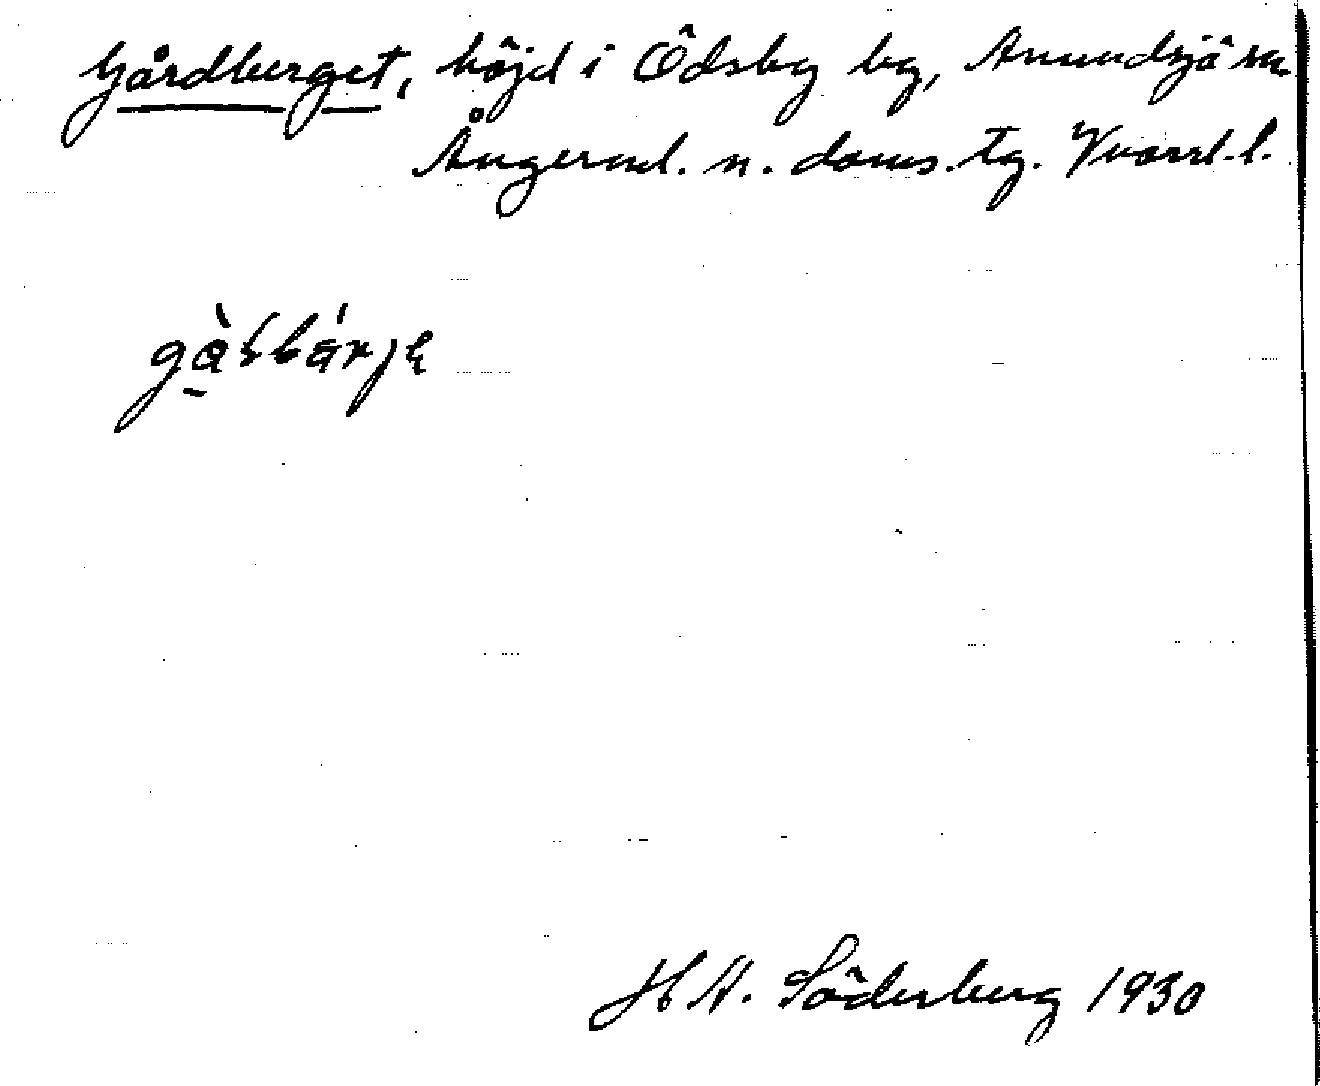 Gårdberget, höjd i Ödsby by, Anundsjö sn.
Ångerml. n. doms. tg. Vnorrl. l.
H A. Söderberg 1930